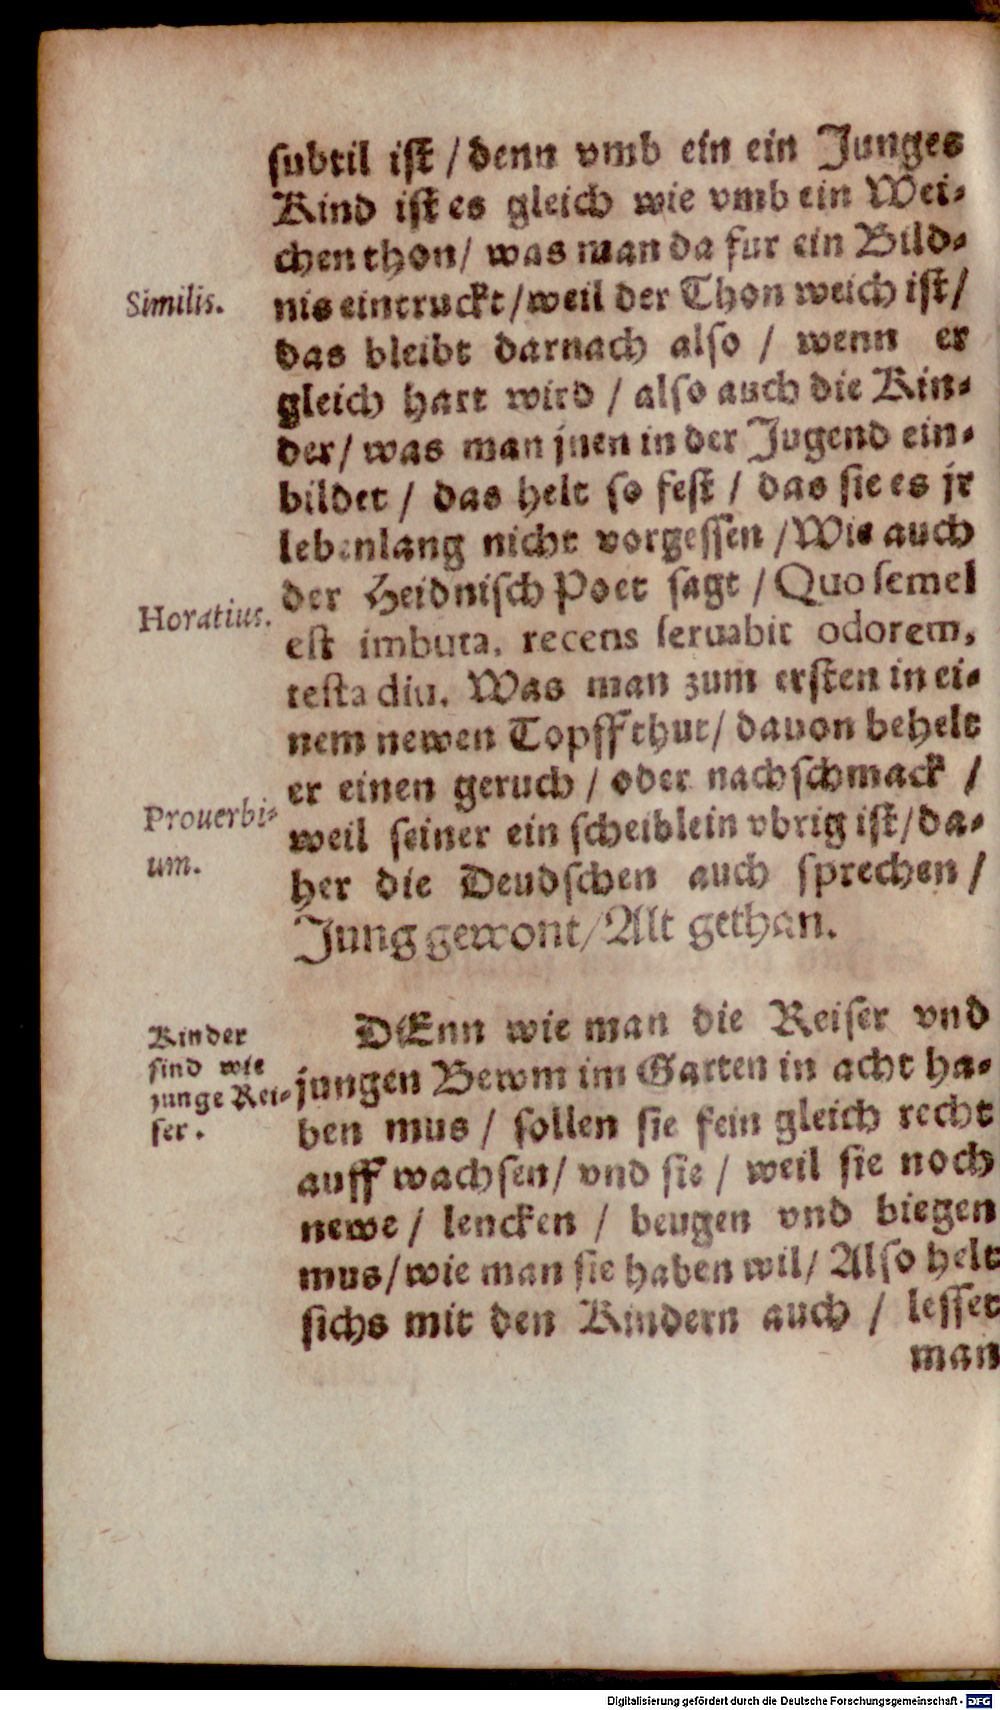 subtil ist / denn vmb ein ein Junges
Kind ist es gleich wie vmb ein Wei-
chen thon / was man da fur ein Bild-
Similis.
nis eintruckt / weil der Thon weich ist /
das bleibt darnach also / wenn er
gleich hart wird / also auch die Kin-
der / was man jnen in der Jugend ein-
bildet / das helt so fest / das sie es jr
lebenlang nicht vorgessen / Wie auch
Horatius.
der Heidnisch Poet sagt / Quo semel
est imbuta, recens seruabit odorem,
testa diu. Was man zum ersten in ei-
nem newen Topff thut / dauon behelt
er einen geruch / oder nachschmack /
Prouerbi-
um.
weil seiner ein scheiblein vbrig ist / da-
her die Deudschen auch sprechen /
Jung gewont / Alt gethan.
Kinder
sind wie
junge Rei-
ser.
DEnn wie man die Reiser vnd
jungen Bewm im Garten in acht ha-
ben mus / sollen sie fein gleich recht
auff wachsen / vnd sie / weil sie noch
newe / lencken / beugen vnd biegen
mus / wie man sie haben wil / Also helt
sichs mit den Kindern auch / lesset
man
Digitalisierung gefördert durch die Deutsche Forschungsgemeinschaft - DFG